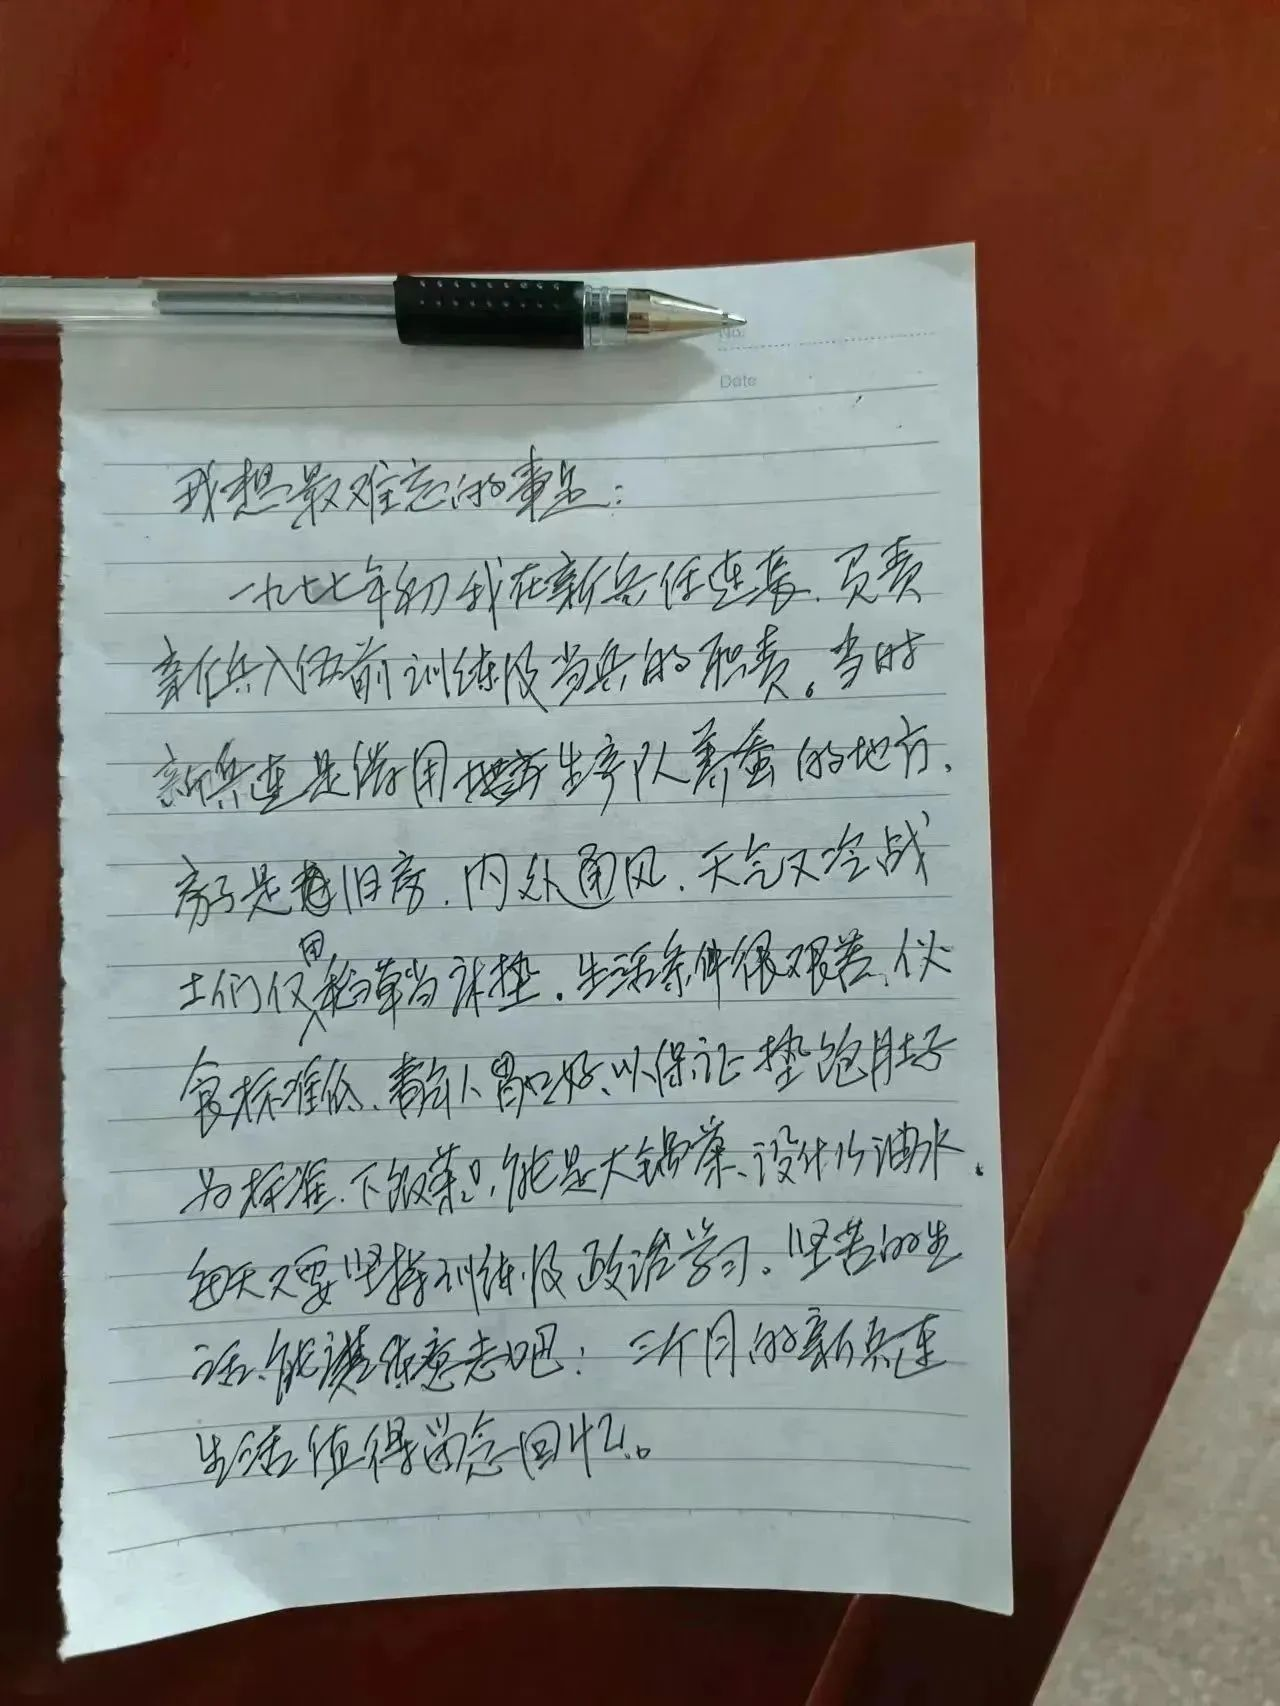 No:
Date
我想最难忘的事是:
一九七七年初我在新兵任连长、负责
新兵入伍前训练及当兵的职责。当时
新兵连是借用地方生产队养蚕的地方、
房子是旧房、内外通风、天气又冷战
士们仅用稻草当床垫。生活条件很艰苦、伙
食标准低、青年人胃口好、以保证垫饱肚子
为标准、下饭菜只能是大锅菜、没什么油水、
每天又要坚持训练及政治学习、坚苦的生
活、能谈炼意志吧!三个月的新兵连
生活值得留念回忆。